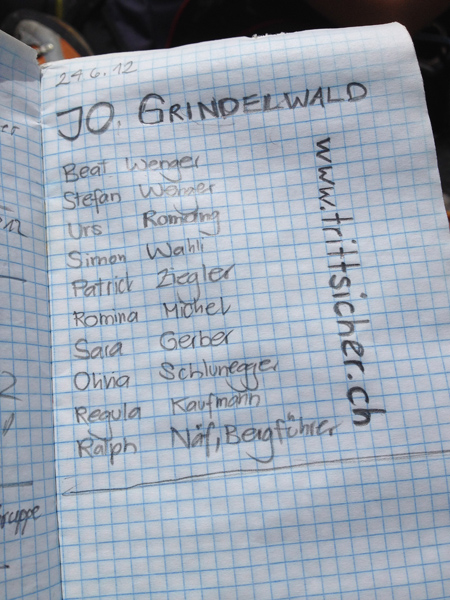 24.6.12
JO. GRINDELWALD
Beat Wenger
Stefan Wenger
Urs Romang
Simon Wahli
Patrick Ziegler
Romina Michel
Sara Gerber
Olivia Schlunegger
Regula Kaufmann
Ralph Näf, Bergführer
www.trittsicher.ch
ruppe